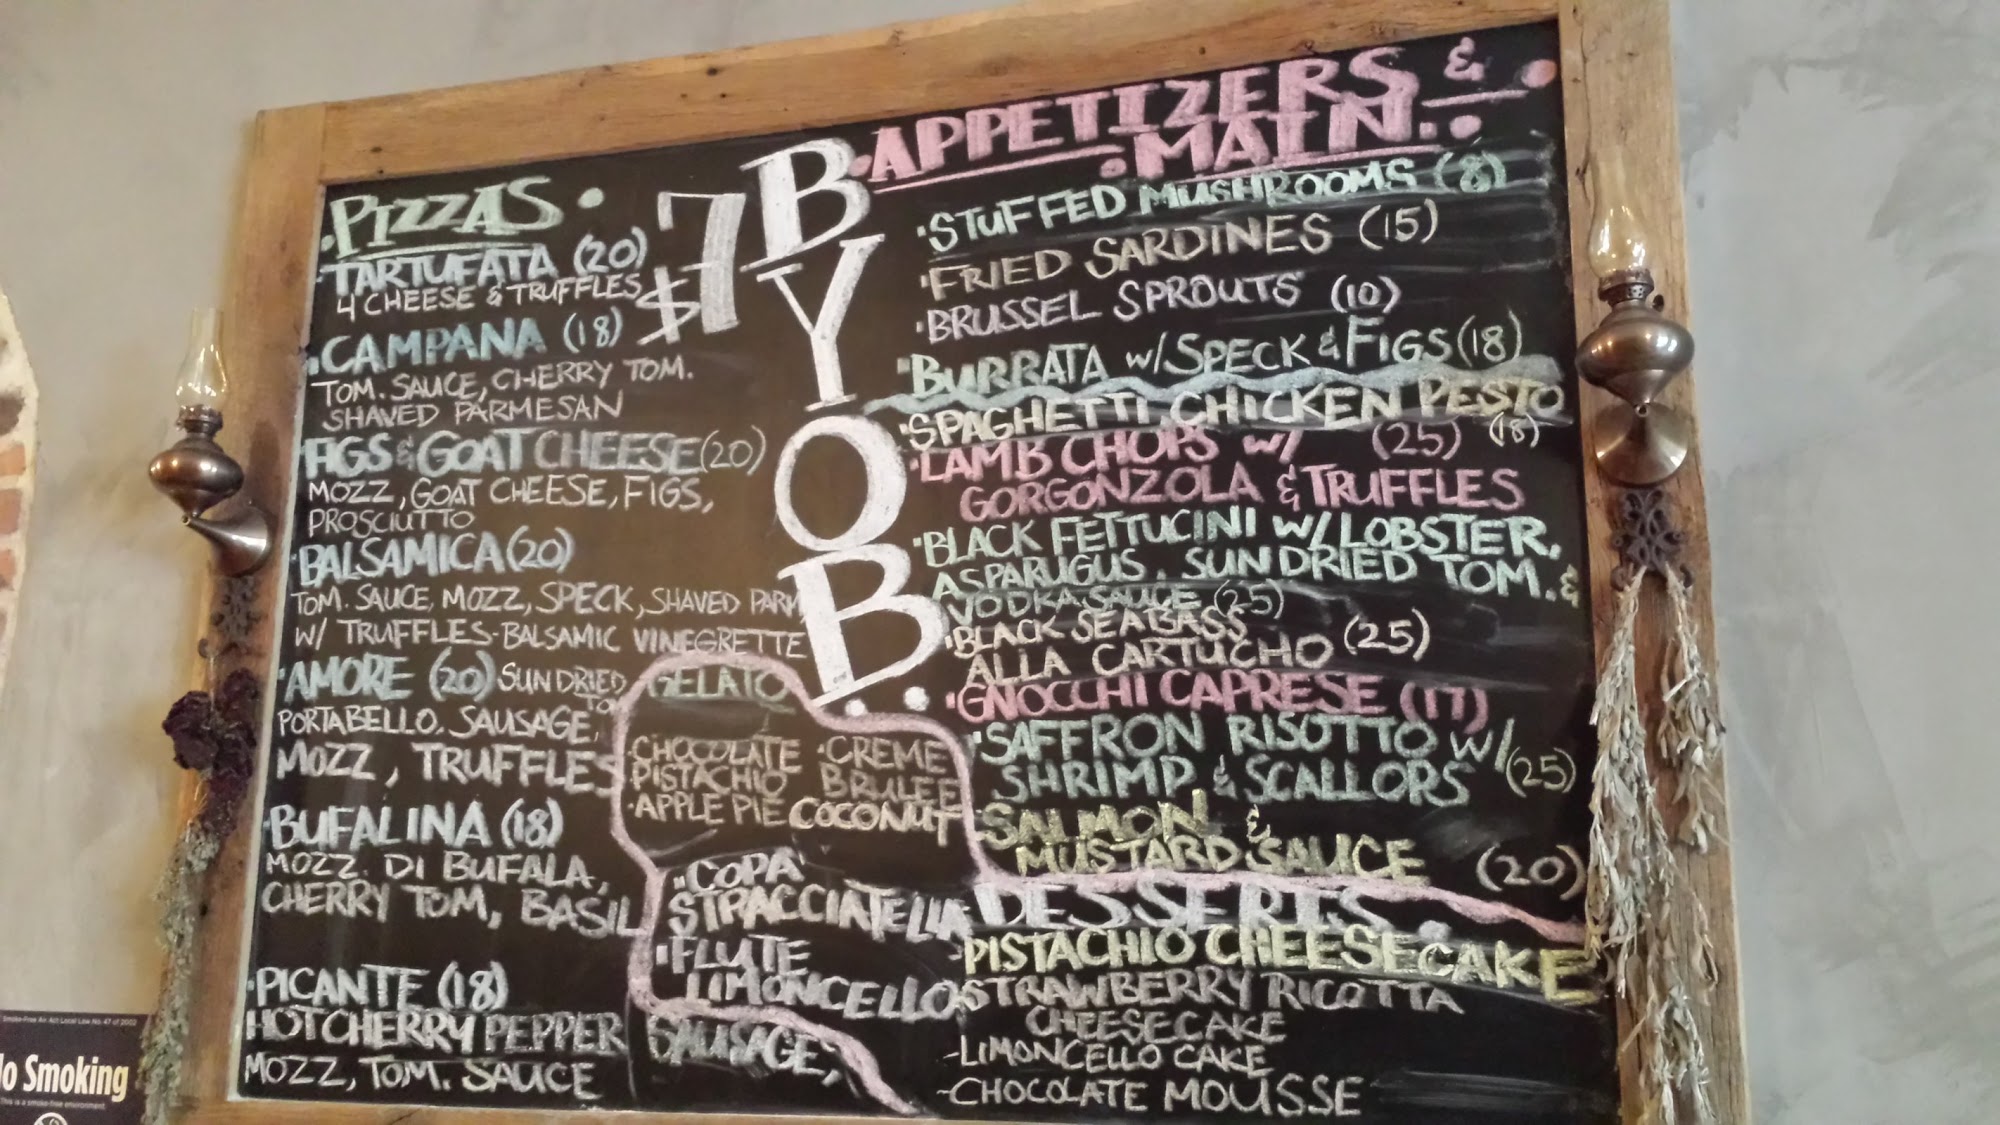 • PIZZAS •
• TARTUFATA (20)
4 CHEESE & TRUFFLES
• CAMPANA (18)
TOM. SAUCE, CHERRY TOM.
SHAVED PARMESAN
FIGS & GOAT CHEESE (20)
MOZZ, GOAT CHEESE, FIGS,
PROSCIUTTO
• BALSAMICA (20)
TOM. SAUCE, MOZZ, SPECK, SHAVED PARM
W/ TRUFFLES - BALSAMIC VINEGRETTE
• AMORE (20) SUNDRIED
TO
PORTABELLO, SAUSAGE,
MOZZ, TRUFFLES
• BUFALINA (18)
MOZZ. DI BUFALA,
CHERRY TOM, BASIL
• PICANTE (18)
HOT CHERRY PEPPER SAUSAGE,
MOZZ, TOM. SAUCE
$7
B
Y
O
B
GELATO
• CHOCOLATE
PISTACHIO
• APPLE PIE
• CREME
BRULEE
COCONUT
• COPA
STRACCIATELLA
• FLUTE
LIMONCELLO
• APPETIZERS & •
• MAIN. •
• STUFFED MUSHROOMS (8)
• FRIED SARDINES (15)
• BRUSSEL SPROUTS (10)
• BURRATA w/ SPECK & FIGS (18)
• SPAGHETTI CHICKEN PESTO
(18)
• LAMB CHOPS w/ (25)
GORGONZOLA & TRUFFLES
• BLACK FETTUCINI w/ LOBSTER,
ASPARUGUS, SUNDRIED TOM. &
VODKA SAUCE (25)
• BLACK SEABASS
ALLA CARTUCHO (25)
• GNOCCHI CAPRESE (17)
• SAFFRON RISOTTO w/
SHRIMP & SCALLORS (25)
• SALMON &
MUSTARD SAUCE (20)
DESSERTS.
PISTACHIO CHEESECAKE
STRAWBERRY RICOTTA
CHEESECAKE
- LIMONCELLO CAKE
- CHOCOLATE MOUSSE
Smoke-Free Air Act Local Law No. 47 of 2002
No Smoking
This is a smoke-free environment.